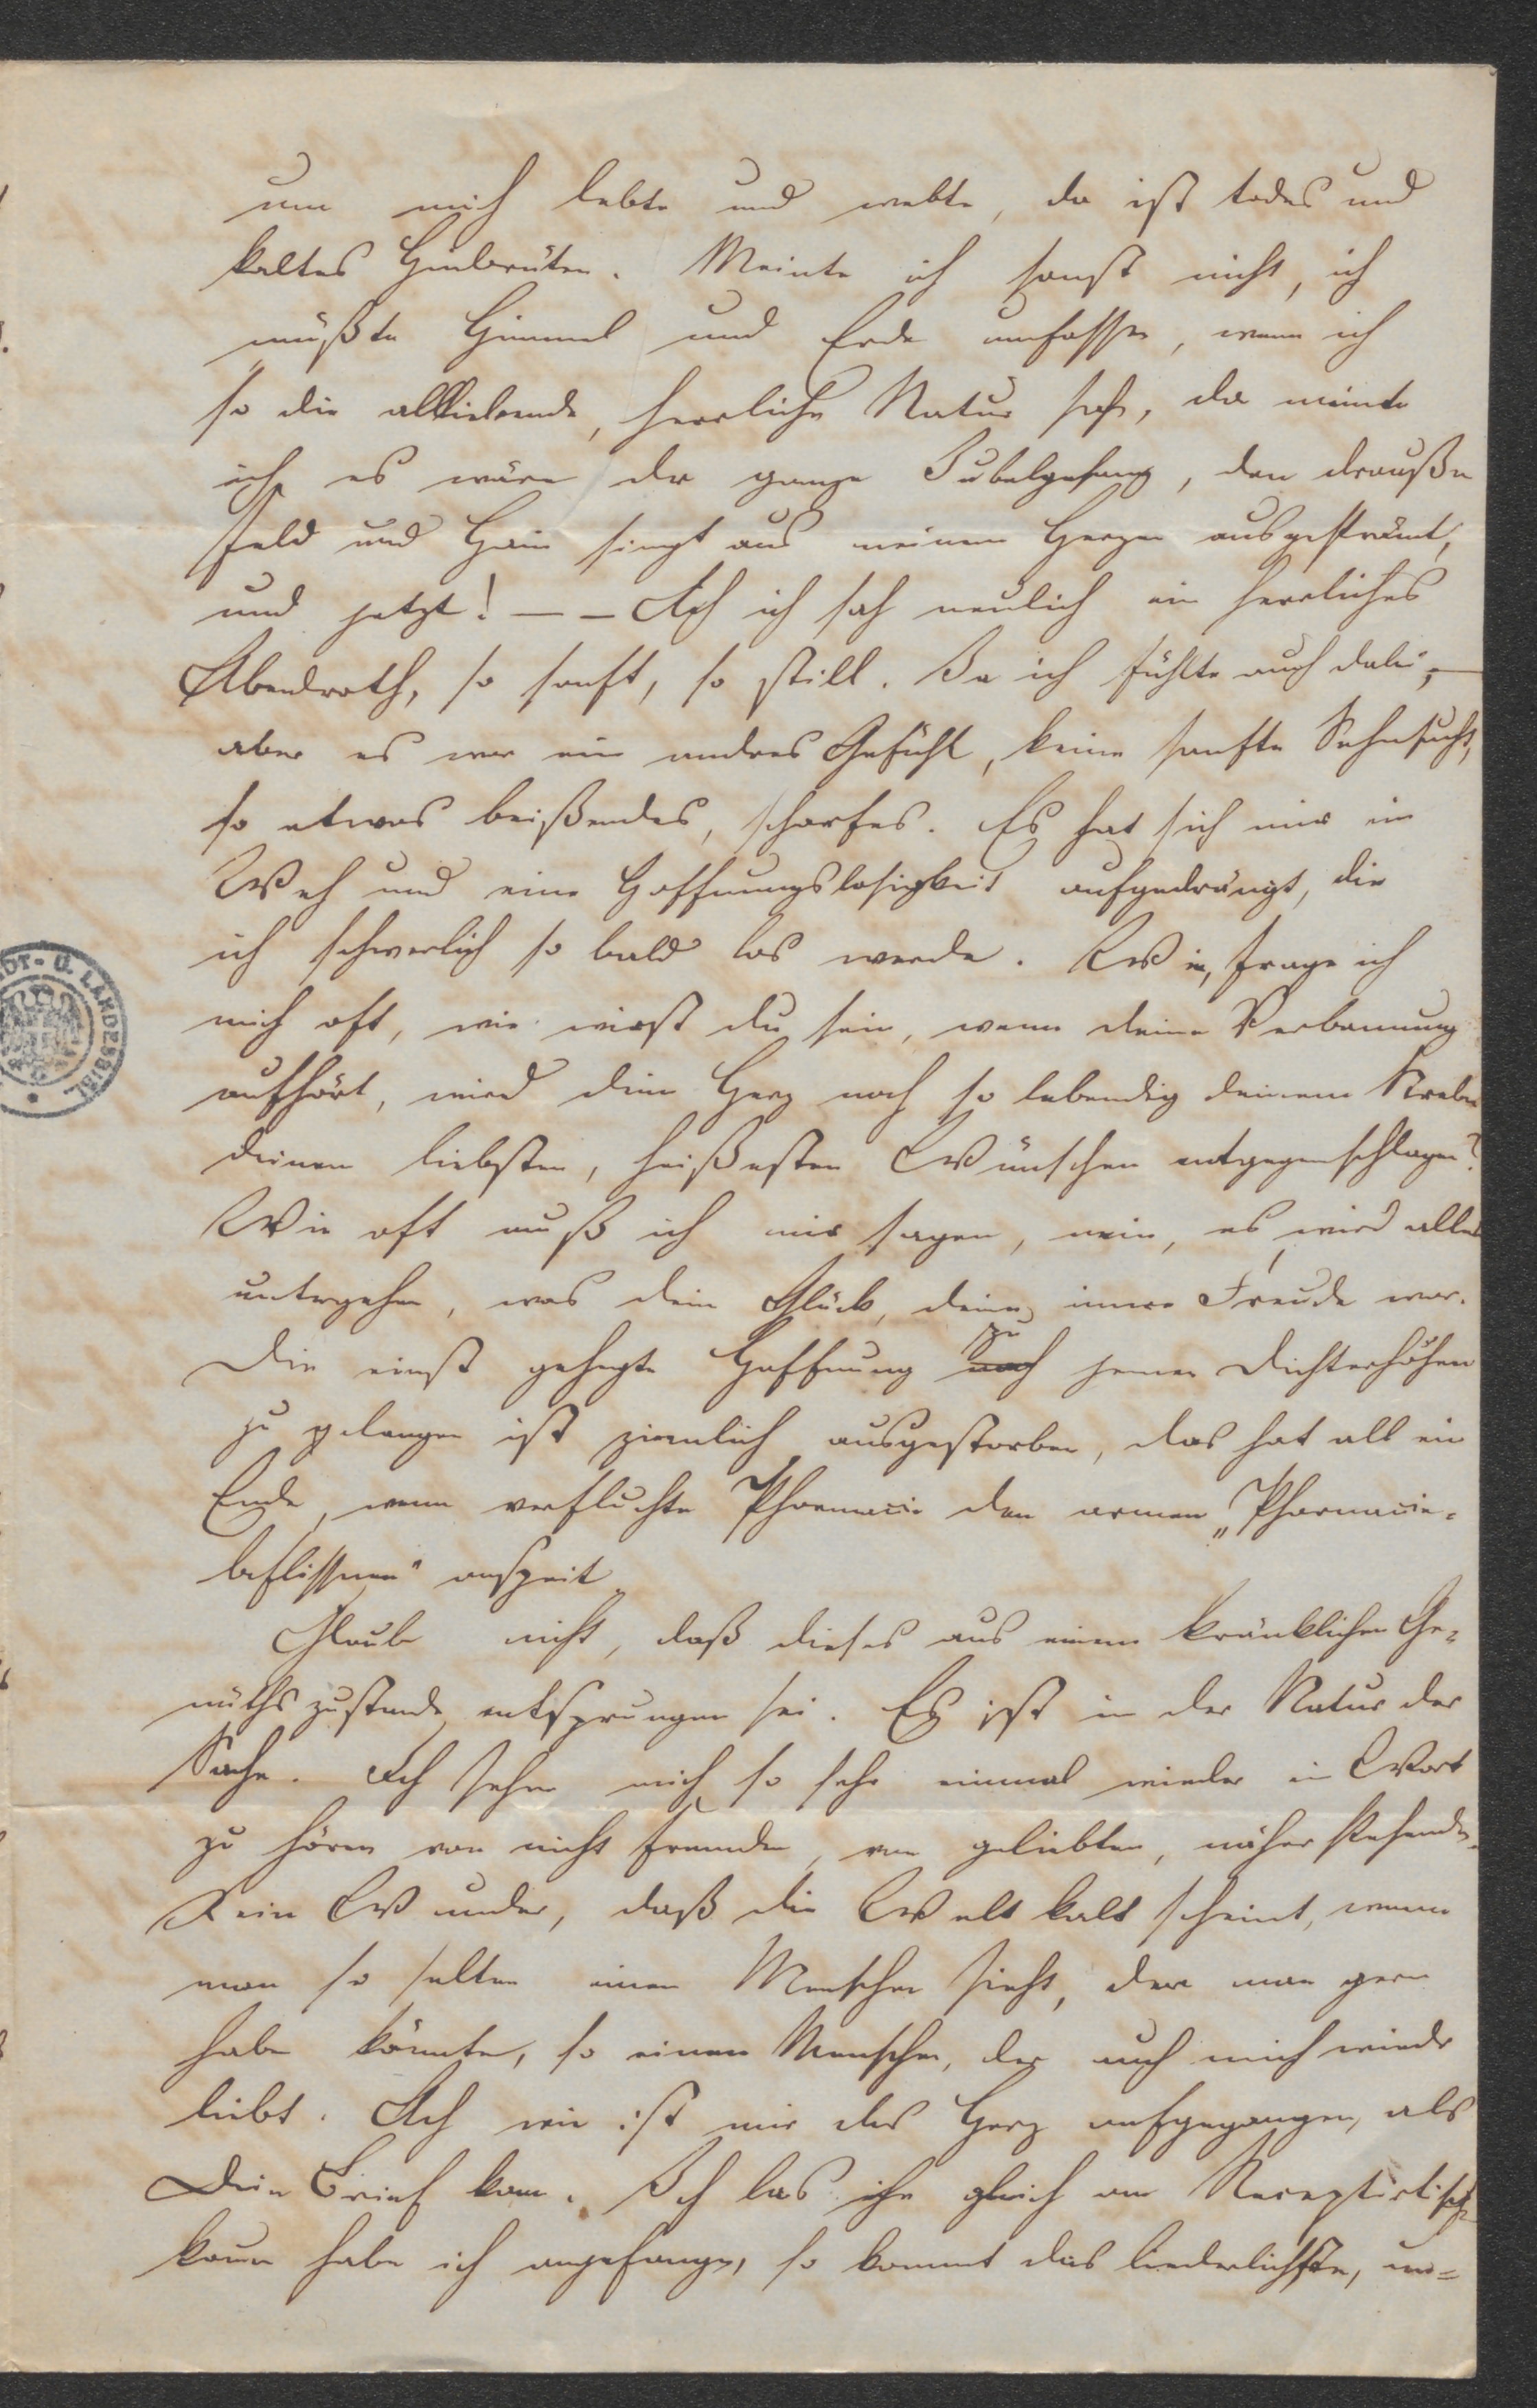 um mich lebte und webte, da ist todes und
kaltes Hinbrüten. Meinte ich sonst nicht, ich
müßte Himmel und Erde umfassen, wenn ich
so die allliebende, herrliche Natur sah, da meinte
ich es wäre der ganze Jubelgesang, den draußen
Feld und Hain singt aus meinem Herzen ausgeströmt,
und jetzt! – – Ach ich sah neulich ein herrliches
Abendroth, so sanft, so still. Ja ich fühlte auch dabei, –
aber es war ein andres Gefühl, keine sanfte Sehnsucht,
so etwas beißendes, scharfes. Es hat sich mir ein
Weh und eine Hoffnungslosigkeit aufgedrängt, die
ich schwerlich so bald los werde. Wie, frage ich
mich oft, wie wirst du sein, wenn deine Verbannung
aufhört, wird dein Herz noch so lebendig deinem Streben
deinen liebsten, heißesten Wünschen entgegenschlagen?
Wie oft muß ich mir sagen, nein, es wird alles
untergehen, was dein Glück, deine innere Freude war.
Die einst gehegte Hoffnung zu jenen Dichterhöhen
zu gelangen ist ziemlich ausgestorben, das hat all ein
Ende, wenn verfluchte Pharmacie den armen „Pharmacie-
beflissenen" anspeit.
Glaube nicht, daß dieses aus einem kränklichen Ge-
müthszustande entsprungen sei. Es ist in der Natur der
Sache. Ich sehne mich so sehr einmal wieder ein Wort
zu hören von nicht fremden, von geliebten, näher stehenden.
Kein Wunder, daß die Welt kalt scheint, wenn
man so selten einen Menschen sieht, den man gern
haben könnte, so einen Menschen, der auch mich wieder
liebt. Ach wie ist mir das Herz aufgegangen, als
Dein Brief kam. Ich las ihn gleich am Receptirtisch
kaum habe ich angefangen, so kommt das liederlichste, un-
DT- U. LANDESBIBL